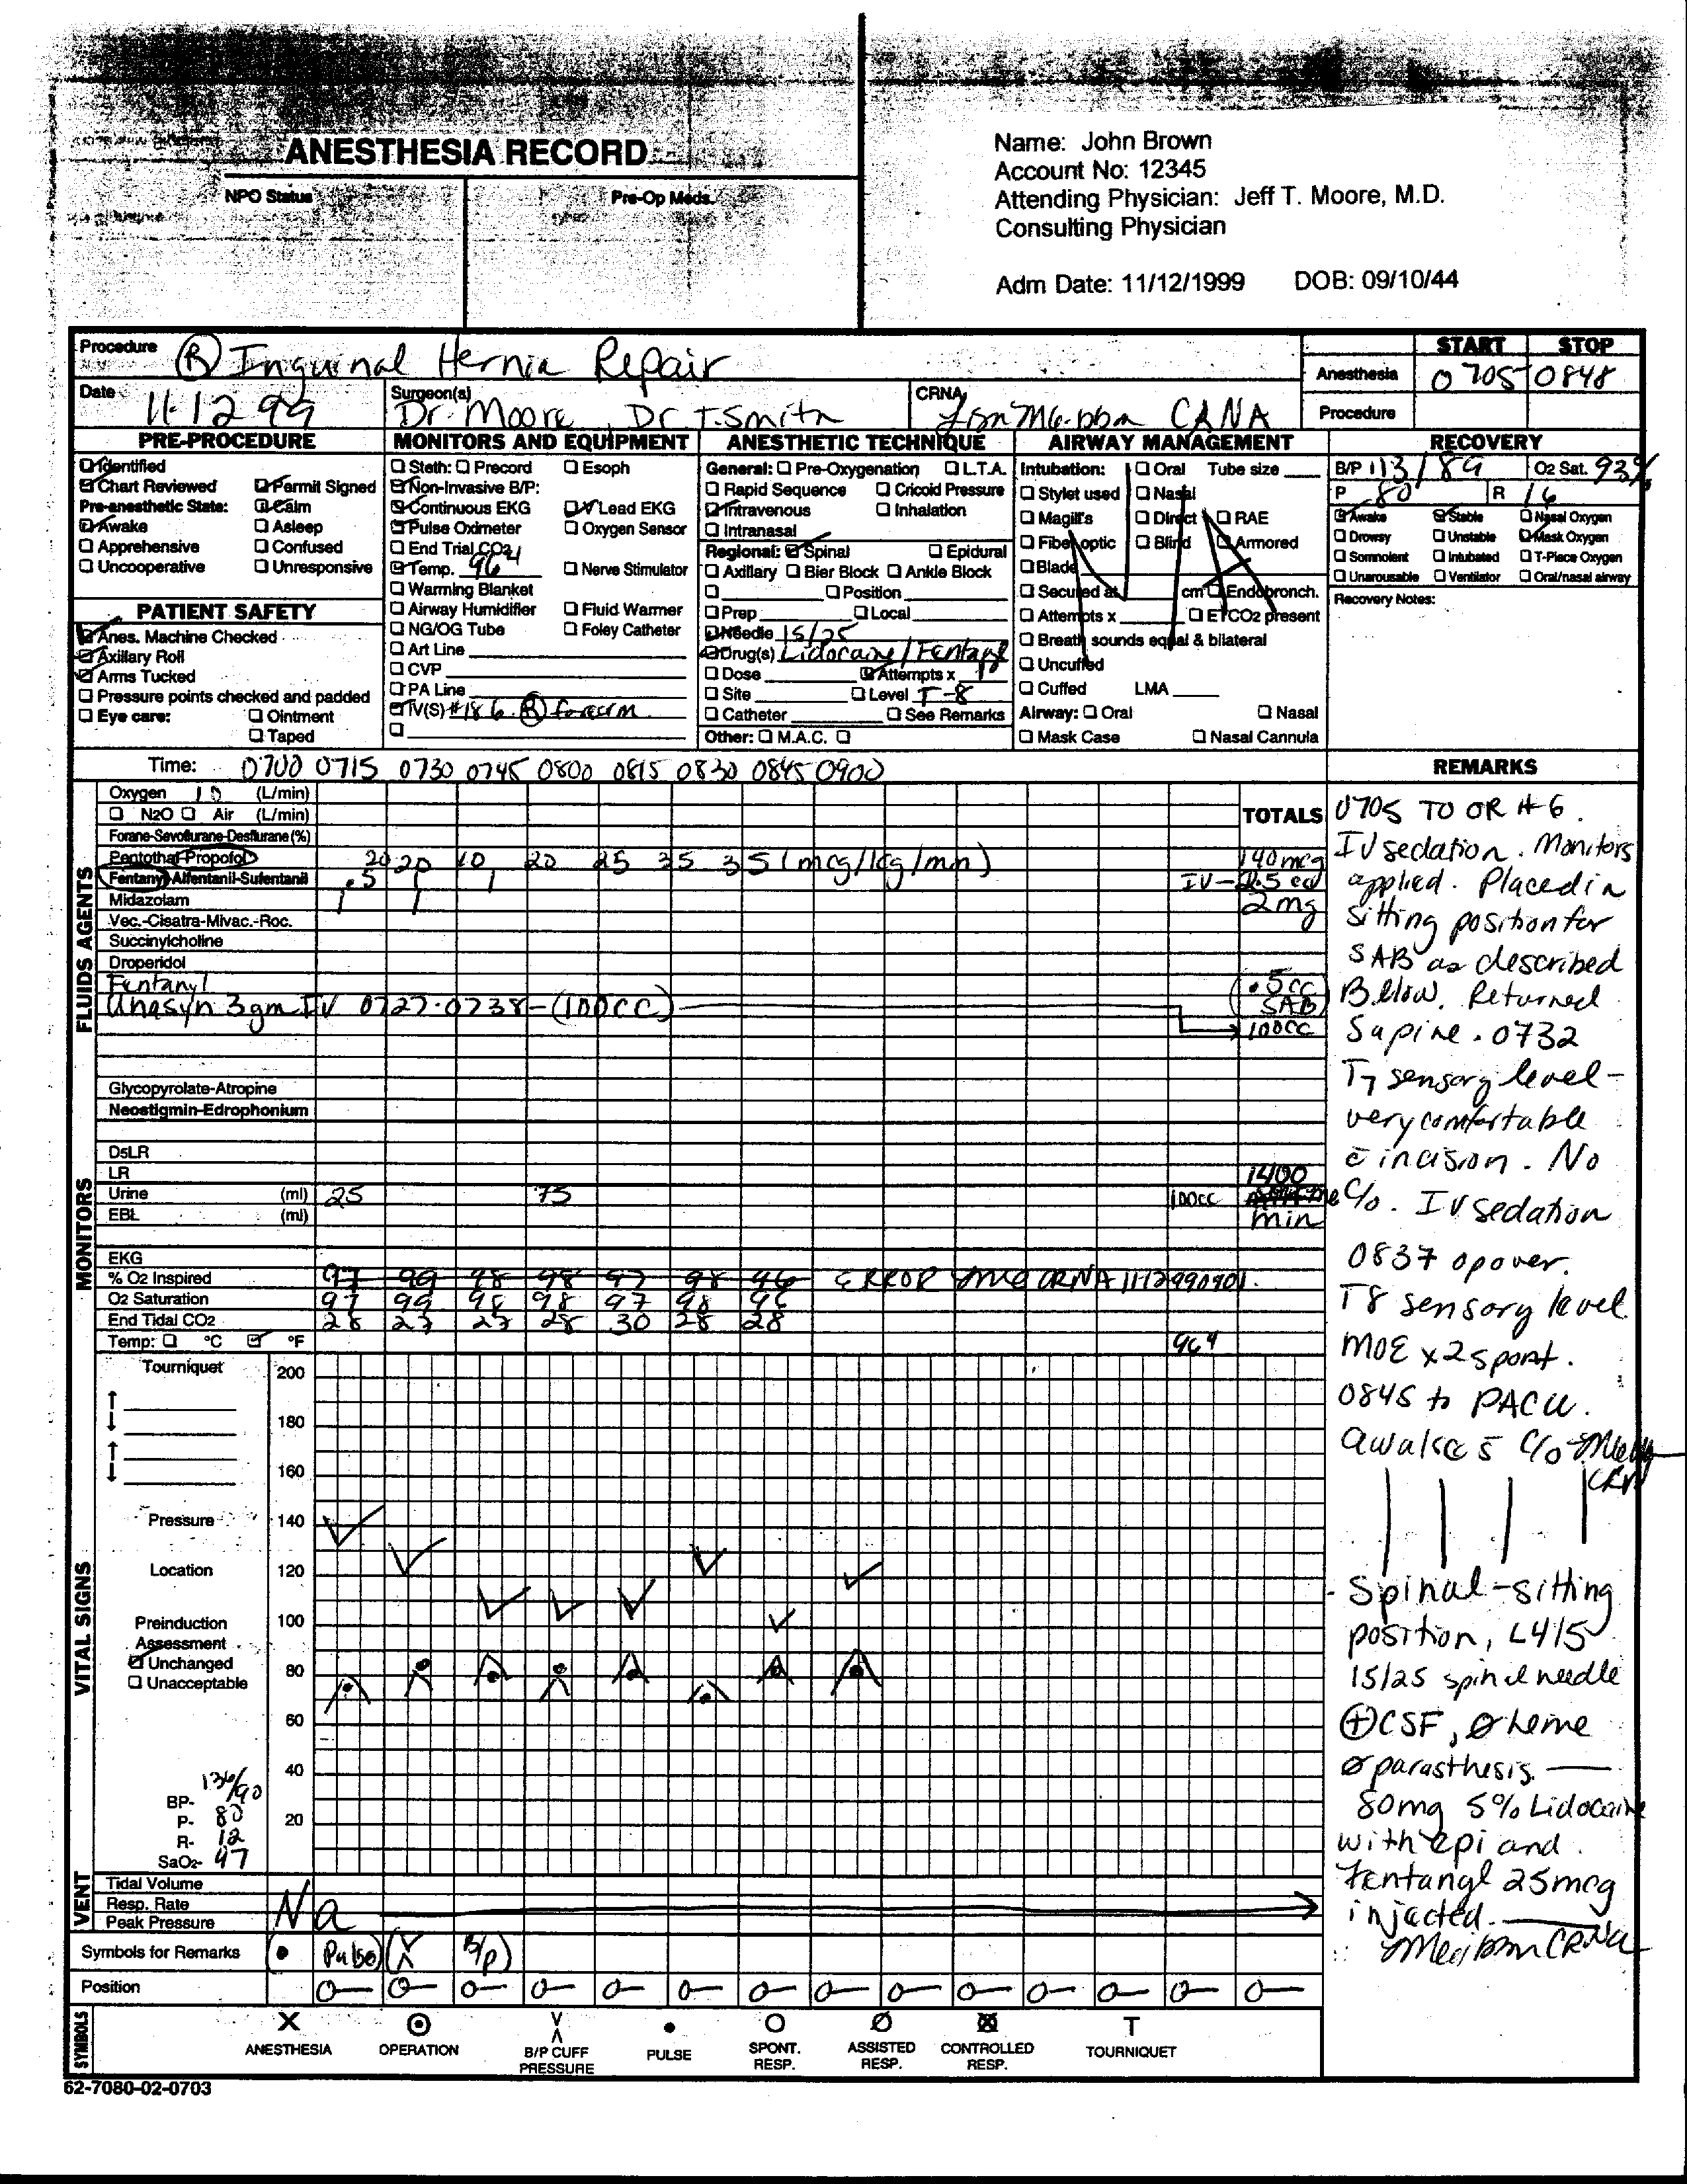 ANESTHESIA RECORD
NPO Status
Pre-Op Meds.
Name: John Brown
Account No: 12345
Attending Physician: Jeff T. Moore, M.D.
Consulting Physician
Adm Date: 11/12/1999 DOB: 09/10/44
Procedure Ⓡ Inguinal Hernia Repair
START STOP
Anesthesia 0705 0848
Procedure
Date 11-12 99
Surgeon(s) Dr. Moore, Dr T. Smith
CRNA CRNA
PRE-PROCEDURE
☑ Identified
☑ Chart Reviewed ☑ Permit Signed
Pre-anesthetic State: ☑ Calm
☑ Awake ☐ Asleep
☐ Apprehensive ☐ Confused
☐ Uncooperative ☐ Unresponsive
PATIENT SAFETY
☑ Anes. Machine Checked
☑ Axillary Roll
☑ Arms Tucked
☐ Pressure points checked and padded
☐ Eye care: ☐ Ointment
☐ Taped
MONITORS AND EQUIPMENT
☐ Steth: ☐ Precord ☐ Esoph
☑ Non-Invasive B/P:
☑ Continuous EKG ☑ V Lead EKG
☑ Pulse Oximeter ☐ Oxygen Sensor
☐ End Trial CO2
☑ Temp. 96⁴ ☐ Nerve Stimulator
☐ Warming Blanket
☐ Airway Humidifier ☐ Fluid Warmer
☐ NG/OG Tube ☐ Foley Catheter
☐ Art Line
☐ CVP
☐ PA Line
☑ IV(S) #18 G. Ⓡ forearm
☐
ANESTHETIC TECHNIQUE
General: ☐ Pre-Oxygenation ☐ L.T.A.
☐ Rapid Sequence ☐ Cricoid Pressure
☑ Intravenous ☐ Inhalation
☐ Intranasal
Regional: ☑ Spinal ☐ Epidural
☐ Axillary ☐ Bier Block ☐ Ankle Block
☐ ☐ Position
☐ Prep ☐ Local
☑ Needle 15/25
☑ Drug(s) Lidocaine/Fentanyl
☐ Dose ☑ Attempts x 1
☐ Site ☐ Level T-8
☐ Catheter ☐ See Remarks
Other: ☐ M.A.C. ☐
AIRWAY MANAGEMENT
Intubation: ☐ Oral Tube size
☐ Stylet used ☐ Nasal
☐ Magill's ☐ Direct ☐ RAE
☐ Fiber optic ☐ Blind ☐ Armored
☐ Blade
☐ Secured at cm ☐ Endobronch.
☐ Attempts x ☐ ETCO2 present
☐ Breath sounds equal & bilateral
☐ Uncuffed
☐ Cuffed LMA
Airway: ☐ Oral ☐ Nasal
☐ Mask Case ☐ Nasal Cannula
N/A
RECOVERY
B/P 113/89 O2 Sat. 93%
P 80 R 16
☑ Awake ☑ Stable ☐ Nasal Oxygen
☐ Drowsy ☐ Unstable ☑ Mask Oxygen
☐ Somnolent ☐ Intubated ☐ T-Piece Oxygen
☐ Unarousable ☐ Ventilator ☐ Oral/nasal airway
Recovery Notes:
Time: 0700 0715 0730 0745 0800 0815 0830 0845 0900
FLUIDS AGENTS
Oxygen 10 (L/min)
☐ N2O ☐ Air (L/min) TOTALS
Forane-Sevoflurane-Desflurane (%)
Pentothal-Propofol 20 20 10 20 25 35 35 (mcg/kg/min) 140 mcg
Fentanyl-Alfentanil-Sufentanil .5 1 1 IV- 2.5 cc
Midazolam 1 1 2mg
Vec.-Cisatra-Mivac.-Roc.
Succinylcholine
Droperidol
Fentanyl (.5cc SAB)
Unasyn 3gm IV 0727-0738-(100cc) 100cc
Glycopyrolate-Atropine
Neostigmin-Edrophonium
MONITORS
D5LR
LR 1400
Urine (ml) 25 75 100cc
EBL (ml) min
EKG
% O2 Inspired 97 99 98 98 97 98 96 ERROR CRNA 11129990901.
O2 Saturation 97 99 98 98 97 98 96
End Tidal CO2 28 27 27 28 30 28 28
Temp: ☐ °C ☑ °F 96⁴
VITAL SIGNS
Tourniquet
200
180
160
Pressure 140
Location 120
Preinduction 100
Assessment
☑ Unchanged 80
☐ Unacceptable
60
40
20
BP- 136/90
P- 80
R- 12
SaO2- 97
VENT
Tidal Volume
Resp. Rate Na
Peak Pressure
Symbols for Remarks (• Pulse) (V Λ B/P)
Position 0— 0— 0— 0— 0— 0— 0— 0— 0— 0— 0— 0— 0— 0—
SYMBOLS
X ANESTHESIA
⊙ OPERATION
V Λ B/P CUFF PRESSURE
• PULSE
O SPONT. RESP.
Ø ASSISTED RESP.
⊗ CONTROLLED RESP.
T TOURNIQUET
62-7080-02-0703
REMARKS
0705 TO OR #6.
IV sedation. Monitors
applied. Placed in
sitting position for
SAB as described
Below. Returned
Supine. 0732
T7 sensory level-
very comfortable
c̄ incision. No
c/o. IV sedation
0837 op over.
T8 sensory level
MOE x2 spont.
0845 to PACU.
awake s̄ c/o
CRN
Spinal-sitting
position, L4/5
15/25 spinal needle
⊕CSF, Ø heme
Ø parasthesis.
80mg 5% Lidocaine
with epi and
Fentanyl 25mcg
injected.
CRNA